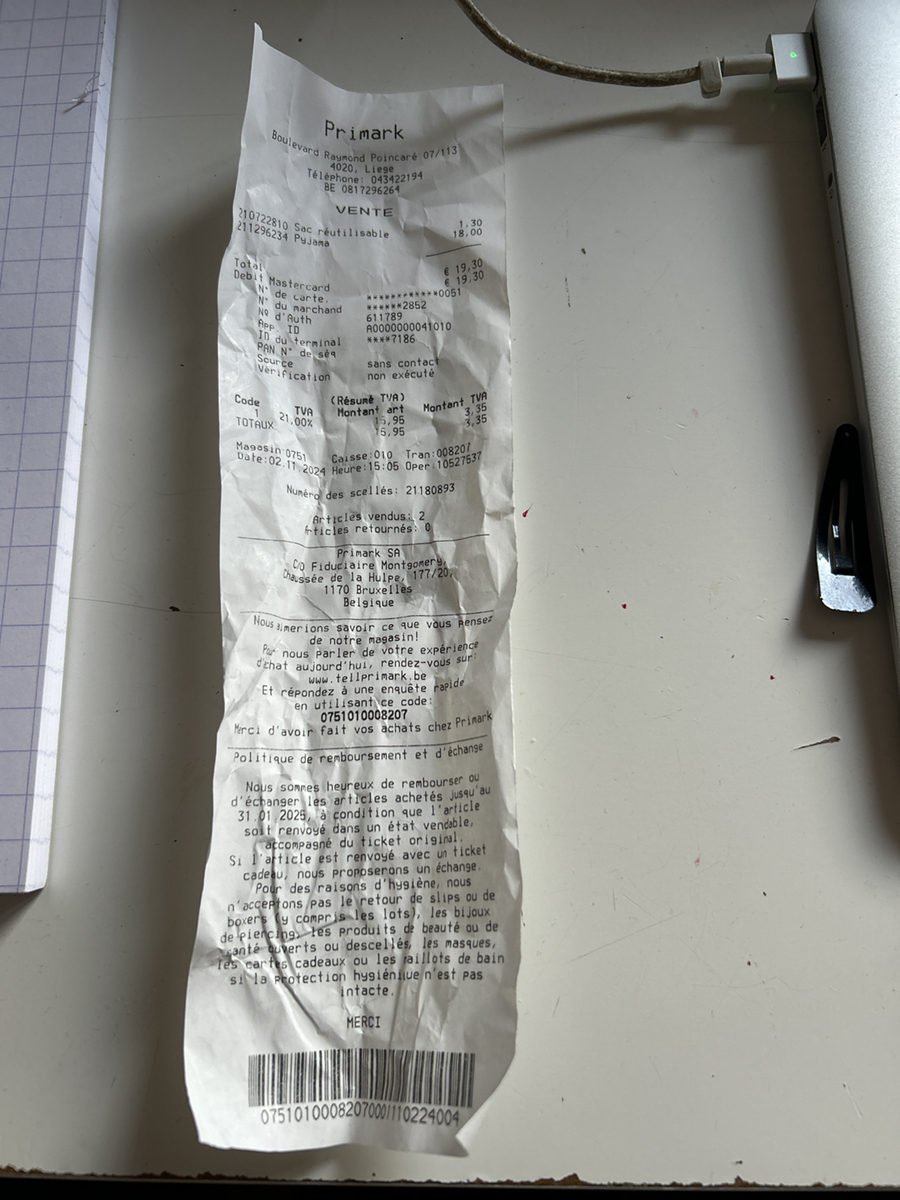 Primark
Boulevard Raymond Poincaré 07/113
4020, Liege
Téléphone: 043422194
BE 0817296264
VENTE
210722810 Sac réutilisable 1,30
211296234 Pyjama 18,00
Total € 19,30
Debit Mastercard € 19,30
N° de carte. ************0051
N° du marchand ******2852
Nº d'Auth 611789
App. ID A0000000041010
ID du terminal ****7186
PAN N° de séq
Source sans contact
Vérification non exécuté
(Résumé TVA)
Code TVA Montant art Montant TVA
1 21,00% 15,95 3,35
TOTAUX 15,95 3,35
Magasin:0751 Caisse:010 Tran:008207
Date:02.11 2024 Heure:15:05 Oper:10527537
Numéro des scellés: 21180893
Articles vendus: 2
Articles retournés: 0
Primark SA
C/O Fiduciaire Montgomery,
Chaussée de la Hulpe, 177/20,
1170 Bruxelles
Belgique
Nous aimerions savoir ce que vous pensez
de notre magasin!
Pour nous parler de votre expérience
d'achat aujourd'hui, rendez-vous sur:
www.tellprimark.be
Et répondez à une enquête rapide
en utilisant ce code:
0751010008207
Merci d'avoir fait vos achats chez Primark
Politique de remboursement et d'échange
Nous sommes heureux de rembourser ou
d'échanger les articles achetés jusqu'au
31.01 2025, à condition que l'article
soit renvoyé dans un état vendable,
accompagné du ticket original.
Si l'article est renvoyé avec un ticket
cadeau, nous proposerons un échange.
Pour des raisons d'hygiène, nous
n'acceptons pas le retour de slips ou de
boxers (y compris les lots), les bijoux
de piercing, les produits de beauté ou de
santé ouverts ou descellés, les masques,
les cartes cadeaux ou les maillots de bain
si la protection hygiénique n'est pas
intacte.
MERCI
07510100082070001110224004